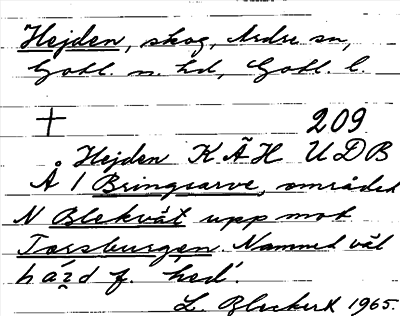 Hejden, skog, Ardre sn,
Gotl. n. hd, Gotl. l.
209
Hejden KÃH UDB
Å / Bringsarve, området
N Blekvät upp mot
Torsburgen. Namnet väl
f. 'hed'.
1965.